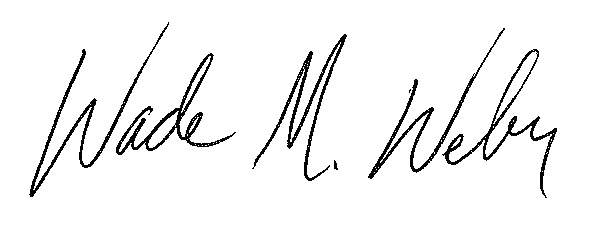 Wade M. Weby